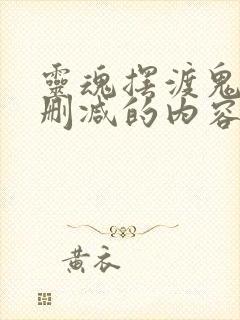 靈魂摆渡鬼
删减的内容
黄衣